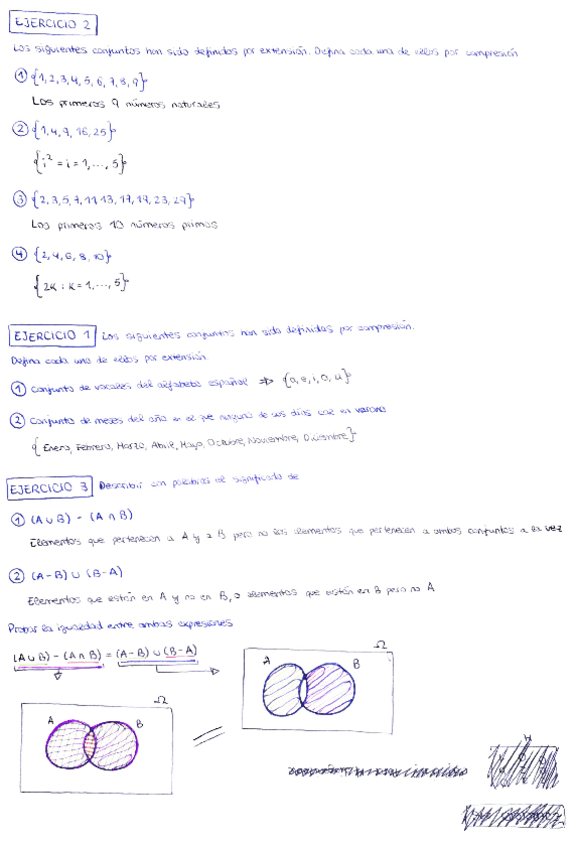 EJERCICIO 2
Los siguientes conjuntos han sido definidos por extensión. Defina cada uno de ellos por compresión
① {1,2,3,4,5,6,7,8,9}
Los primeros 9 números naturales
② {1,4,9,16,25}
{i² = i = 1,..., 5}
③ {2,3,5,7,11 13, 17, 19, 23, 29}
Los primeros 10 números primos
④ {2,4,6,8,10}
{2K : K = 1,..., 5}
EJERCICIO 1 Los siguientes conjuntos han sido definidos por compresión.
Defina cada uno de ellos por extensión
① Conjunto de vocales del alfabeto español ⇒ {a,e,i,o,u}
② Conjunto de meses del año en el que ninguno de sus días cae en verano
{Enero, Febrero, Marzo, Abril, Mayo, Octubre, Noviembre, Diciembre}
EJERCICIO 3 Describir con palabras el significado de
① (A ∪ B) - (A ∩ B)
Elementos que pertenecen a A y a B pero no los elementos que pertenecen a ambos conjuntos a la vez
② (A-B) ∪ (B-A)
Elementos que están en A y no en B, o elementos que están en B pero no A
Probar la igualdad entre ambas expresiones
(A ∪ B) - (A ∩ B) = (A-B) ∪ (B-A)
Ω
A B
=
Ω
A B